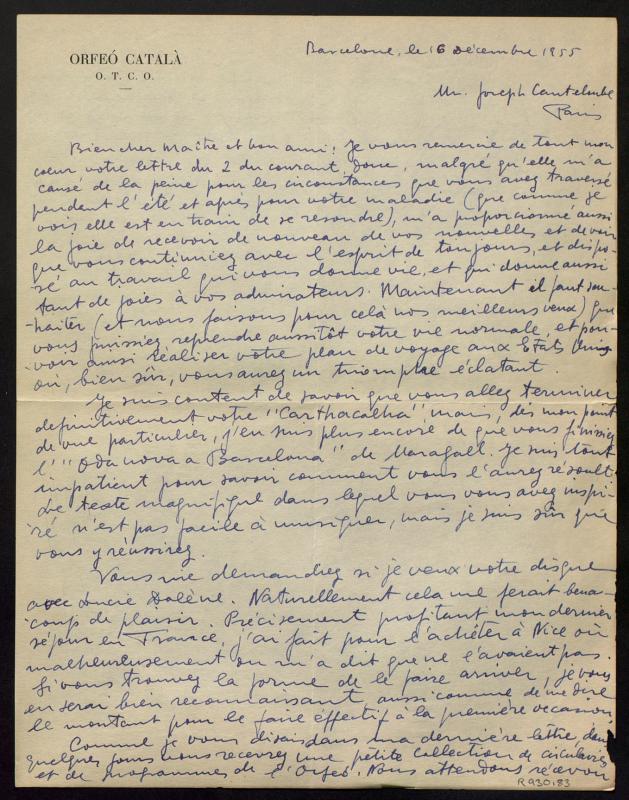 ORFEÓ CATALÀ
O. T. C. O.
Barcelone, le 6 Décembre 1955
Mr. Joseph Canteloube
Paris
Bien cher Maître et bon ami: Je vous remercie de tout mon
coeur votre lettre du 2 du courant, donc, malgré qu'elle m'a
causé de la peine pour les circonstances que vous avez traversé
pendent l'été et après pour votre maladie (que comme je
vois elle est en train de se resondre), m'a proporcionné aussi
la joie de recevoir de nouveau de vos nouvelles et de voir
que vous continuiez avec l'esprit de toujours, et dispo-
sé au travail qui vous donne vie, et qui donne aussi
tant de joies à vos admirateurs. Maintenant il faut sou-
haiter (et nous faisons pour celà nos meilleurs veux) que
vous puissiez reprendre aussitôt votre vie normale, et pou-
voir ainsi réaliser votre plan de voyage aux Etats Unis
où, bien sûr, vous aurez un triomphe éclatant.
Je suis content de savoir que vous allez terminer
definitivement votre "Carthacalha" mais, dès mon point
de vue particulier, j'en suis plus encore de que vous finissiez
l'"Oda nova a Barcelona" de Maragall. Je suis tout
impatient pour savoir comment vous l'aurez résoult.
Le texte magnifique dans lequel vous vous avez inspi-
ré n'est pas facile à musiquer, mais je suis sûr que
vous y réussirez.
Vous me demandez si je veux votre disque
avec Lucie Dolène. Naturellement cela me ferait beau-
coup de plaisir. Précisement profitant mon dernier
séjour en France, j'ai fait pour l'achéter à Nice où
malheureusement on m'a dit que ne l'avaient pas.
Si vous trouvez la forme de le faire arriver, je vous
en serai bien reconnaissant, aussi comme de me dire
le montant pour le faire éffectif à la première occasion.
Comme je vous disais dans ma dernière lettre, dans
quelques jours vous recevrez une petite collection de circulaires
et de programmes de l'Orfeó. Nous attendons recevoir
R 930.83